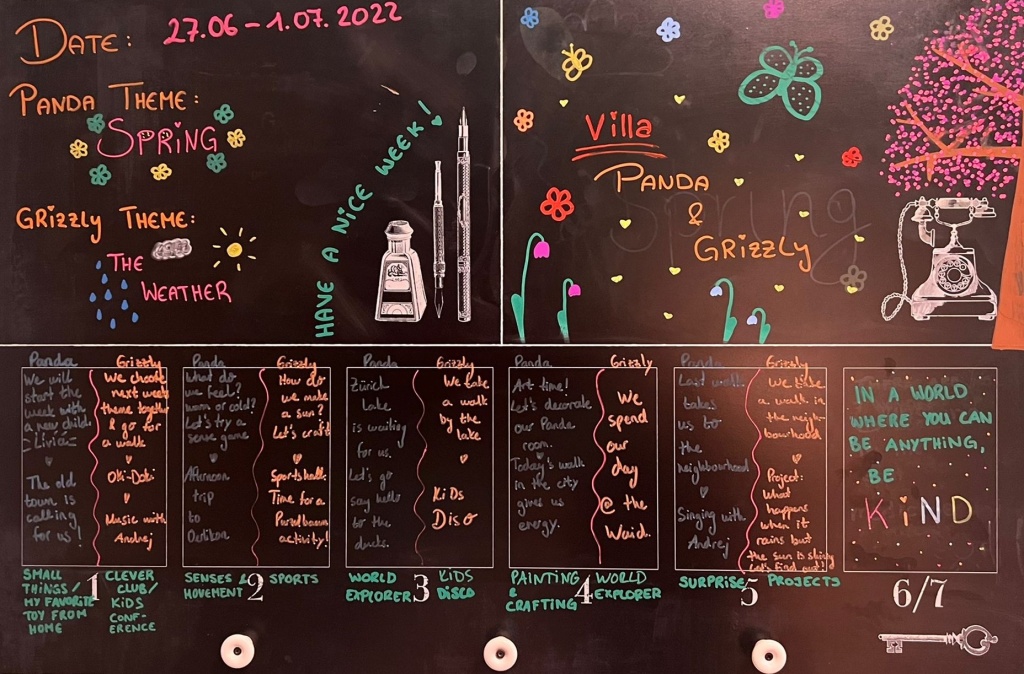 DATE: 27.06 – 1.07. 2022
PANDA THEME:
SPRING
GRIZZLY THEME:
THE
WEATHER
HAVE A NICE WEEK!
Villa
PANDA
&
GRIZZLY
Spring
Panda
We will
start the
week with
a new child
- Livia -
The old
town is
calling
for us!
Grizzly
We choose
next week
theme together
& go for
a walk
Oki-Doki
Music with
Andrej
Panda
What do
we feel?
warm or cold?
Let's try a
sense game
Afternoon
trip
to
Oerlikon
Grizzly
How do
we make
a sun?
Let's craft
Sportshalle
Time for a
activity!
Panda
Zürich
Lake
is waiting
for us.
Let's go
say hello
to the
ducks.
Grizzly
We take
a walk
by the
lake
KiDs
DisO
Panda
Art time!
Let's decorate
our Panda
room.
Today's walk
in the city
gives us
energy.
Grizzly
We
spend
our
day
@ the
Waid.
Panda
Last walk
takes
us to
the
neighbourhood
Singing with
Andrej
Grizzly
We take
a walk in
the neigh-
bourhood
Project:
What
happens
when it
rains but
the sun is shining
Let's find out!
IN A WORLD
WHERE YOU CAN
BE ANYTHING,
BE
KiND
SMALL
THINGS/
MY FAVORITE
TOY FROM
HOME
1
CLEVER
CLUB/
KIDS
CONF-
ERENCE
SENSES &
MOVEMENT
2
SPORTS
WORLD
EXPLORER
3
KIDS
DISCO
PAINTING
&
CRAFTING
4
WORLD
EXPLORER
SURPRISE
5
PROJECTS
6/7